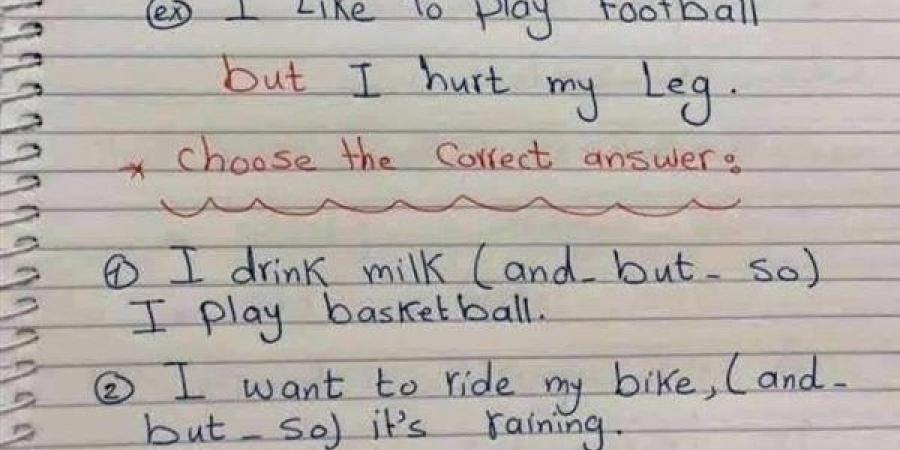 (ex) I Like to play football
but I hurt my Leg.
* choose the Correct answer:
① I drink milk (and - but - so)
I play basketball.
② I want to ride my bike, (and -
but - so) it's raining.